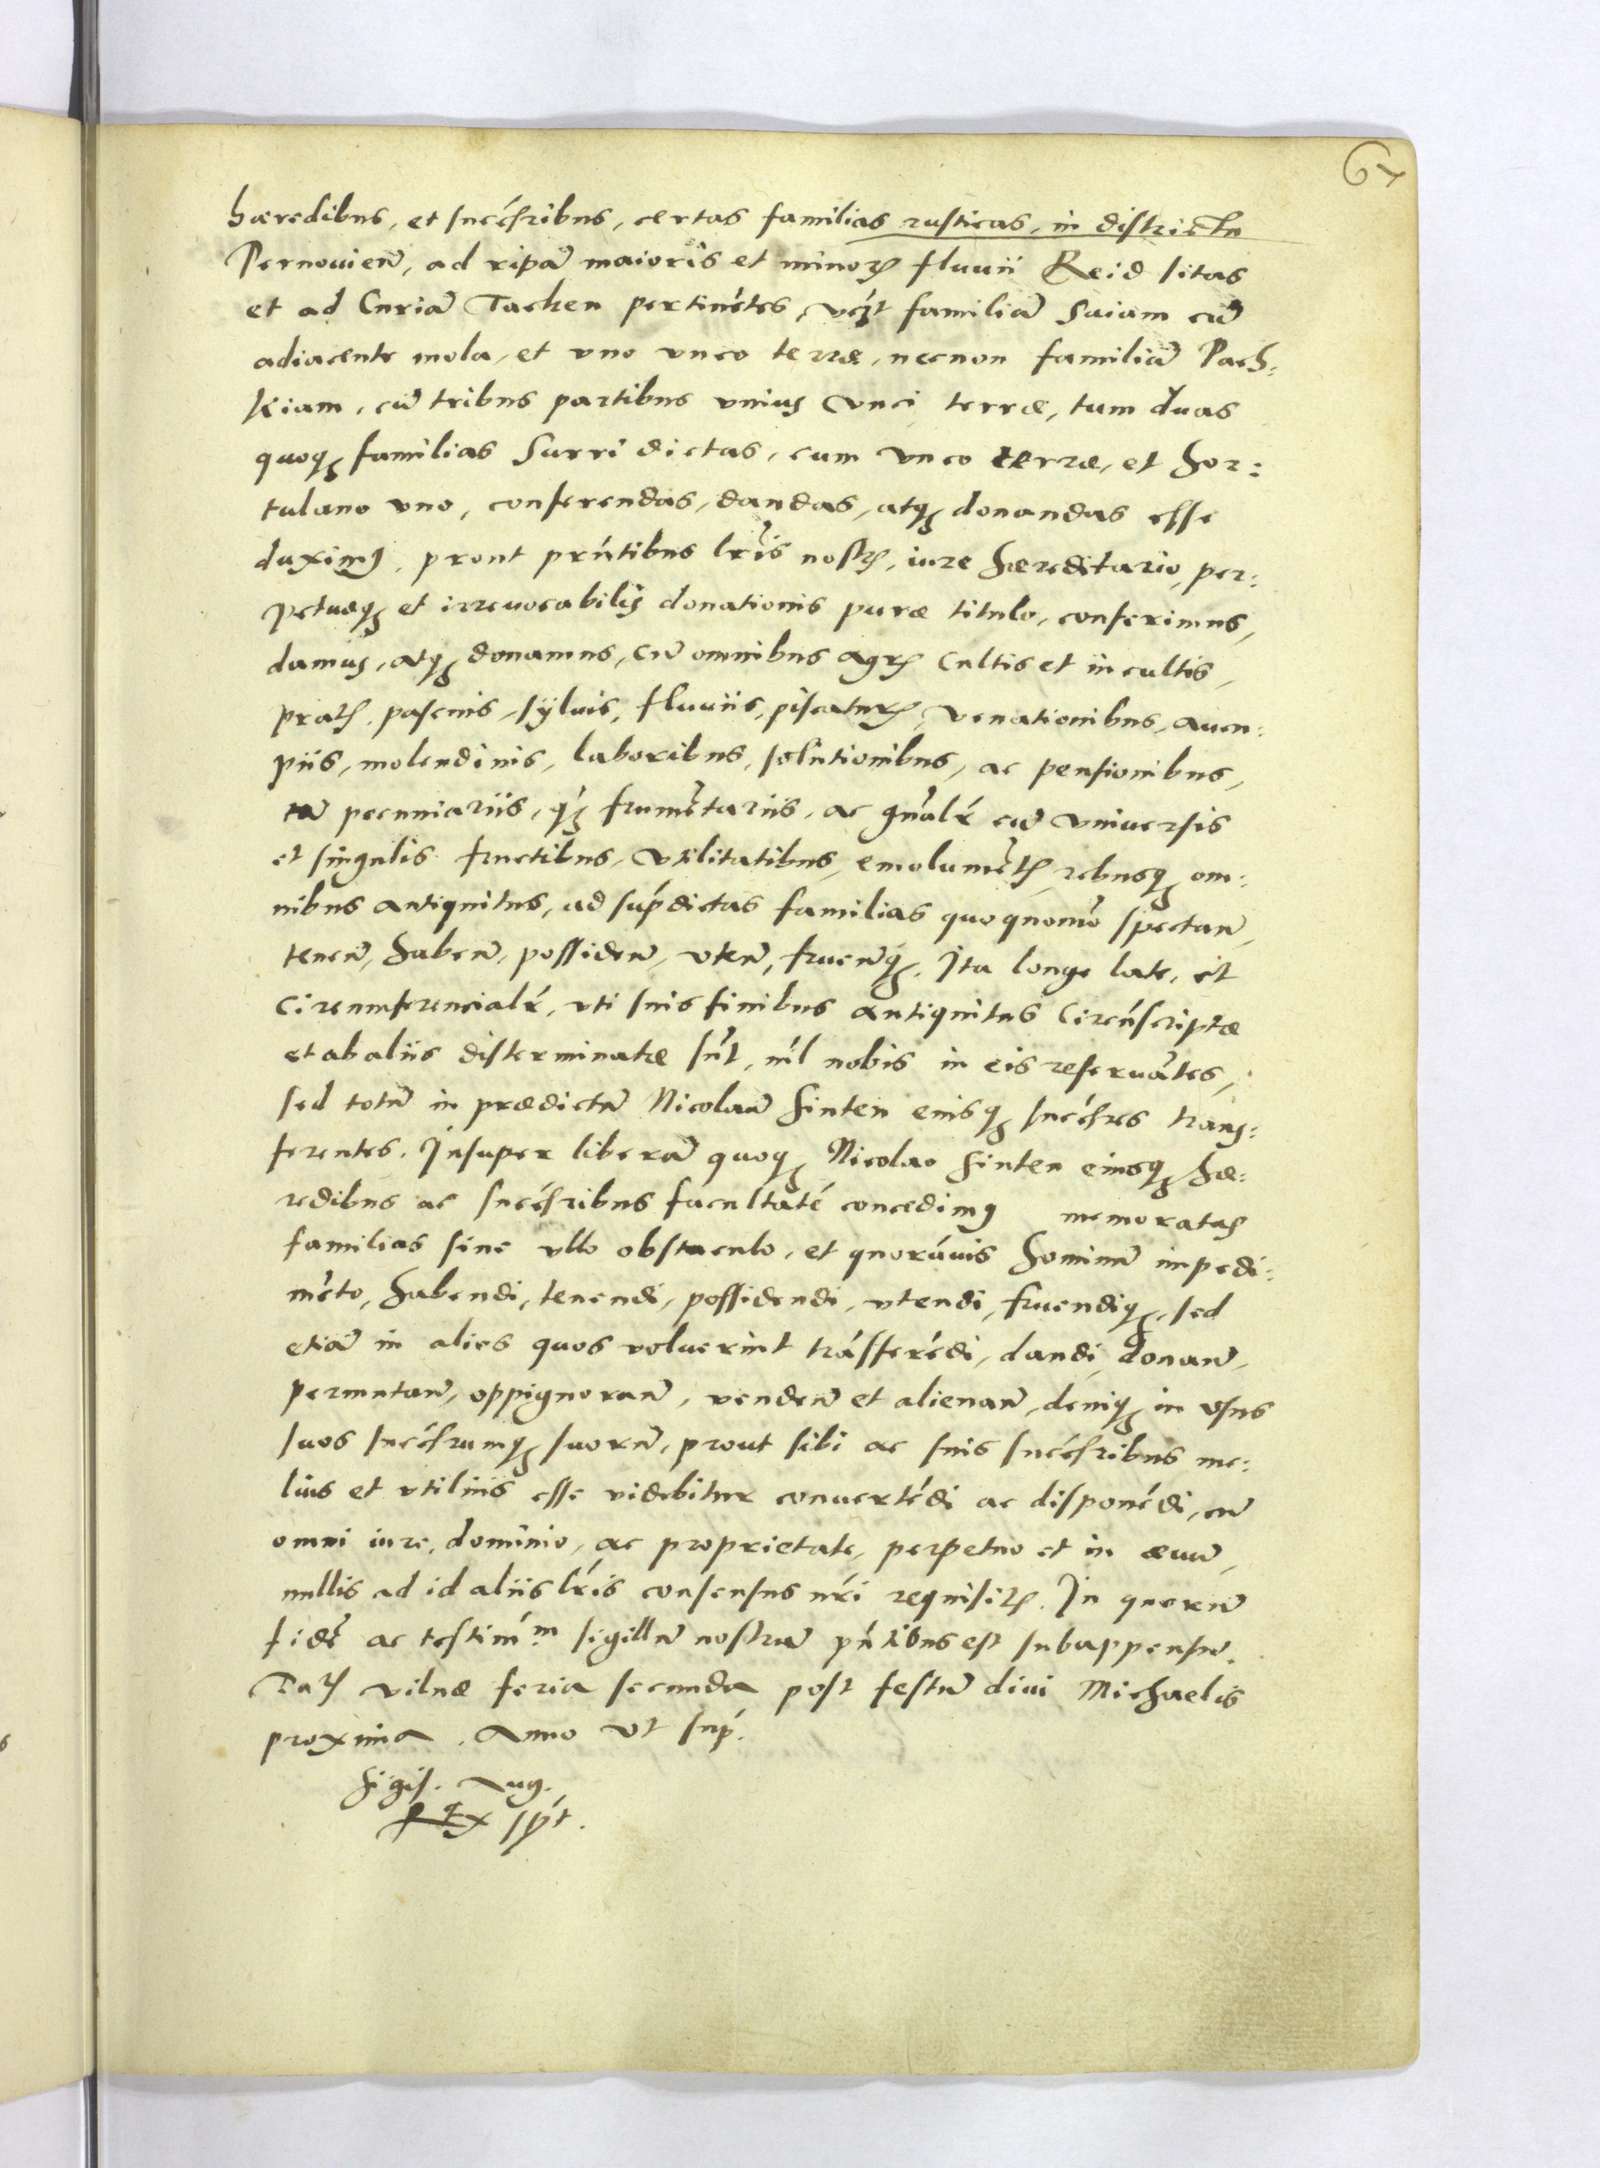 67
hæredibus, et succ̃sribus, certas familias rusticas, in districtu
Pernouien̄, ad ripā maioris et minorꝭ fluuii Reid sitas
et ad Curiā Tacken pertinẽtes, vcꝫt familiā Saiam cū
adiacente mola, et vno vnco terræ, necnon familiā Pach:
kiam, cū tribus partibus vnius vnci terræ, tum duas
quoqꝫ familias Surri dictas, cum vnco terræ, et hor:
tulano vno, conferendas, dandas, atqꝫ donandas esse
duximꝰ, prout prn̄tibus lrĩs nostrꝭ, iure hæreditario, per:
petuæqꝫ et irreuocabilis donationis puræ titulo, conferimus,
damus, atqꝫ donamus, cū omnibus agrꝭ cultis et incultis,
pratꝭ, pascuis, syluis, fluuiis, piscaturꝭ, venationibus, aucu:
piis, molendinis, laboribus, solutionibus, ac pensionibus,
tā pecuniariis, qꝫ̃ frumẽtariis, ac gñalr̃ cū vniuersis
et singulis fructibus, vtilitatibus, emolumẽtꝭ, rebusqꝫ om:
nibus antiquitus, ad supr̃dictas familias quoquomõ spectan̄,
tenen̄, haben̄, possiden̄, vten̄, fruen̄qꝫ. Ita longe late, et
circumferencialr̃, vti suis finibus antiquitus circũscriptæ
et ab aliis disterminatæ sũt, nĩl nobis in eis reseruãtes,
sed totū in prædictū Nicolaū Finten eiusqꝫ succ̃sres trans:
ferentes. Insuper liberā quoqꝫ Nicolao Finten eiusqꝫ hæ:
redibus ac succ̃sribus facultatẽ concedimꝰ memoratas
familias sine vllo obstaculo, et quorũuis hominū impedi:
mẽto, habendi, tenendi, possidendi, vtendi, fruendiqꝫ, sed
etiā in alios quos voluerint trãsferẽdi, dandi, donan̄,
permutan̄, oppignoran̄, venden̄ et alienan̄, deniqꝫ in vsus
suos succ̃srumqꝫ suorū, prout sibi ac suis succ̃sribus me:
lius et vtilius esse videbitur conuertẽdi ac disponẽdi, cū
omni iure, dominio, ac proprietate, perpetuo et in æuū,
nullis ad id aliis lr̃is consensus nr̃i requisitꝭ. In quorū
fidẽ ac testim̃m sigillū nostrū pñtibus est subappensū.
Datꝭ Vilnæ feria secunda post festū diui Michaelis
proxima. Anno vt supr̃.
Sigis. Aug.
Rex spt̃.